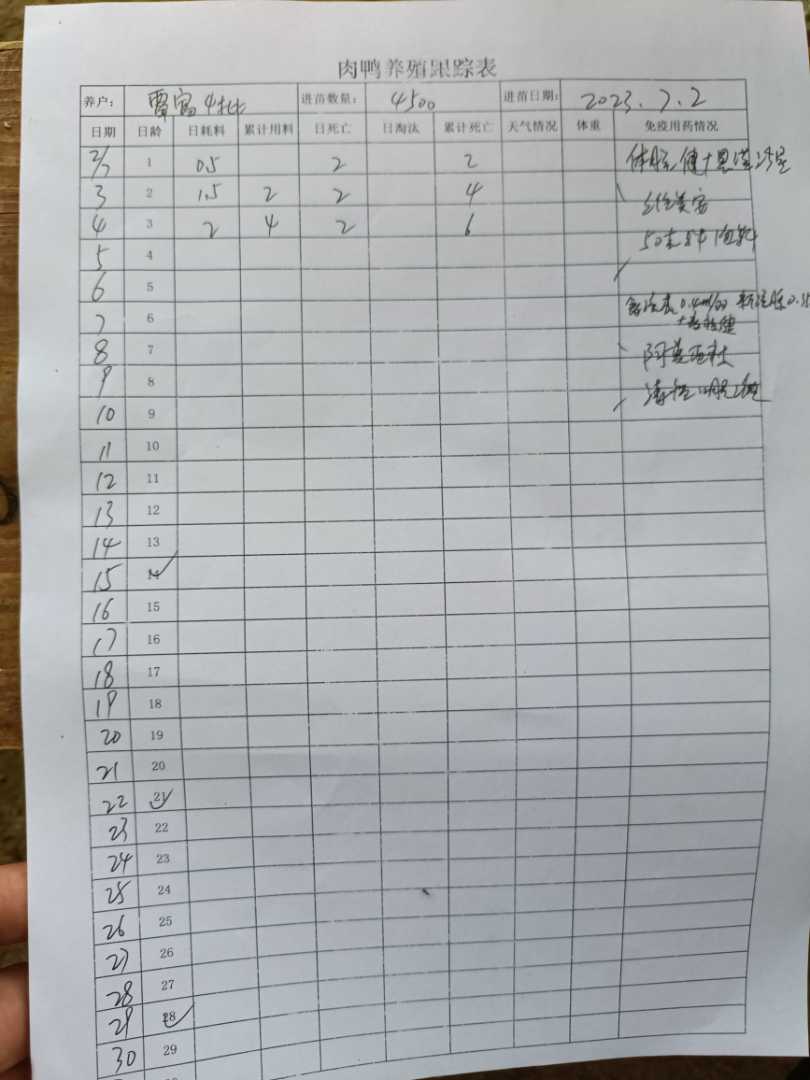 肉鸭养殖跟踪表
养户： 雷富4批 进苗数量： 4500 进苗日期： 2023.7.2
日期 日龄 日耗料 累计用料 日死亡 日淘汰 累计死亡 天气情况 体重 免疫用药情况
2/7 1 0.5 2 2
3 2 1.5 2 2 4
4 3 2 4 2 6
5 4
6 5
7 6
8 7
9 8
10 9
11 10
12 11
13 12
14 13
15 14
16 15
17 16
18 17
19 18
20 19
21 20
22 21
23 22
24 23
25 24
26 25
27 26
28 27
29 28
30 29